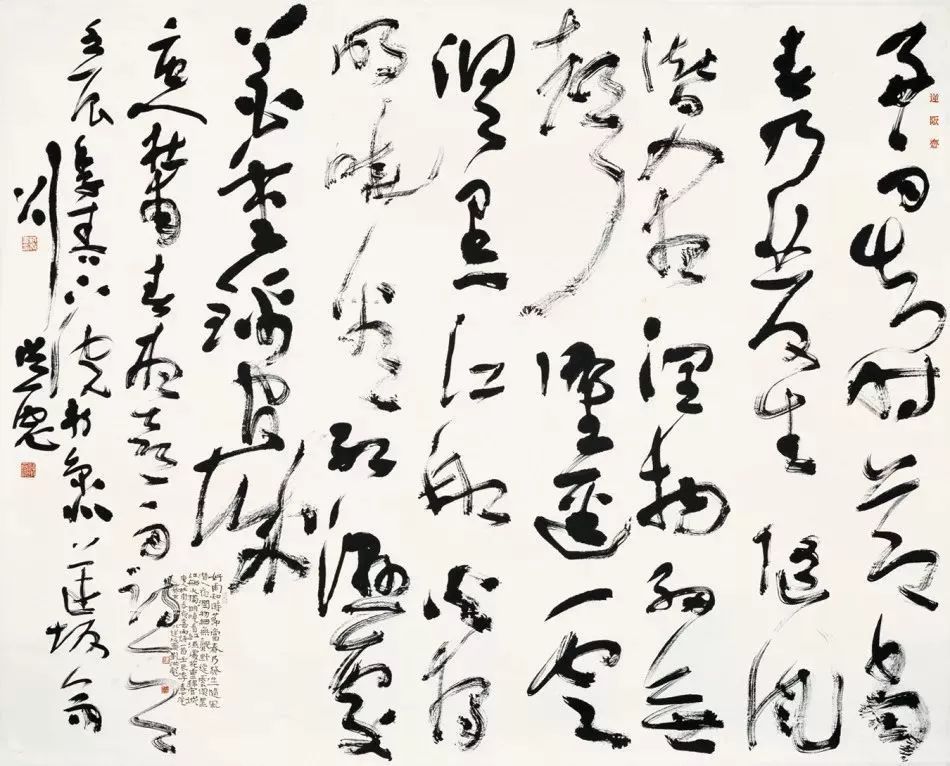 好雨知時節當
春乃發生隨風
潛入夜潤物細無
聲野逕雲
俱黑江船火獨
明曉看紅濕處
花重錦官城
唐人杜甫春夜喜雨詩一首
壬辰
劉洪彪
好雨知時節當春乃發生隨風
潛入夜潤物細無聲野徑雲俱黑
江船火獨明曉看紅濕處花重錦官城